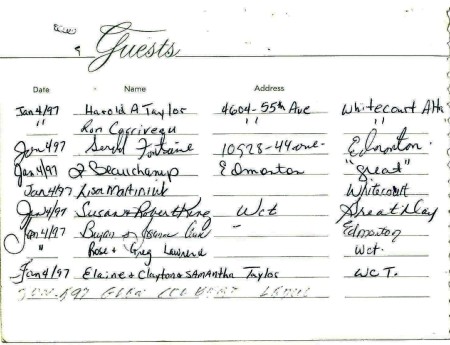 Guests
Date Name Address
Jan 4/97 Harold A Taylor 4604-55th Ave Whitecourt Alta
" Ron Corriveau " " "
Jan 4 97 Fontaine 10528-44 ave- Edmonton
Jan 4/97 J Beauchamp Edmonton "great"
Jan 4/97 Lisa Martiniuk Whitecourt
Jan 4/97 Susan & Robert King Wct Great Day
Jan 4/97 Bryan & Joanne - Edmonton
" Rose & Greg Lawrence Wct.
Jan 4/97 Elaine + Clayton & SAMANTHA Taylor WCT.